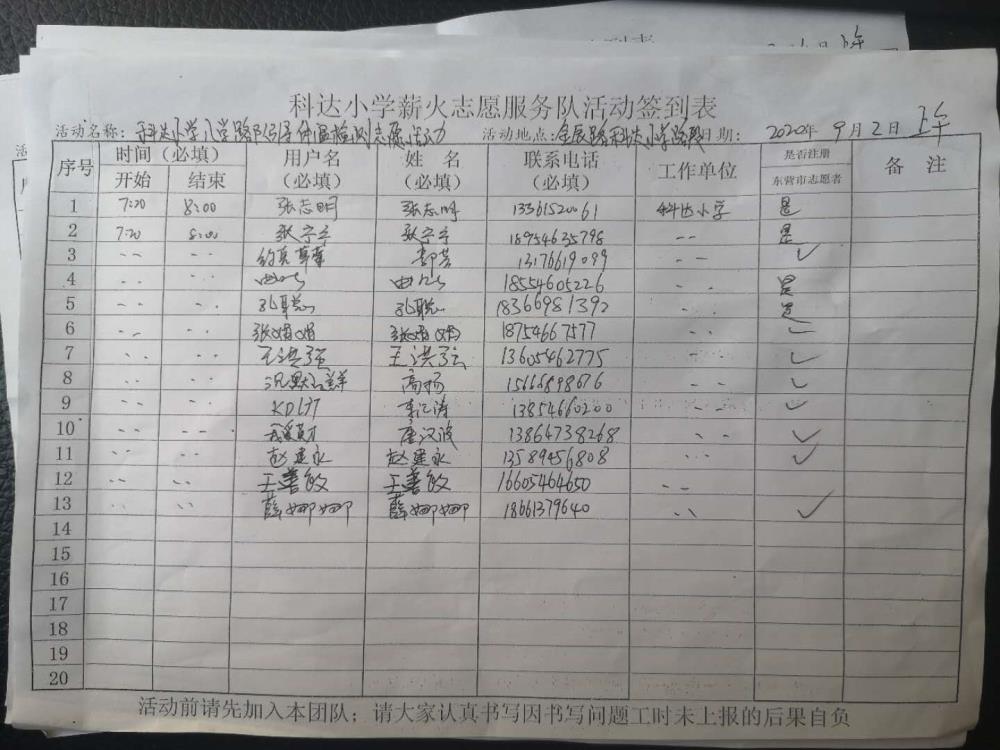 科达小学薪火志愿服务队活动签到表
活动名称：科达小学上学路队引导体温检测志愿活动 活动地点：金辰路科达小学路段 日期： 2020年 9月2日 上午
序号 时间（必填） 用户名（必填） 姓 名（必填） 联系电话（必填） 工作单位 是否注册东营市志愿者 备 注
开始 结束
1 7:20 8:00 张志明 张志明 13361520061 科达小学 是
2 7:20 8:00 张宁宁 张宁宁 18954635798 -- 是
3 -- -- 13176619099 -- ✓
4 -- -- 18554605226 -- 是
5 -- -- 孔聪 孔聪 18366981392 -- 是
6 -- -- 张娟娟 张娟娟 18754667577 -- ✓
7 -- -- 王洪强 王洪强 13605462775 -- ✓
8 -- -- 沉默的鲜 高扬 15666898676 -- ✓
9 -- -- KD137 李江涛 13854660200 -- ✓
10 -- -- 唐汉波 13864738268 -- ✓
11 -- -- 赵建永 赵建永 13589456808 -- ✓
12 -- -- 王善敏 王善敏 16605464650 --
13 -- -- 薛娜娜 薛娜娜 18661379640 -- ✓
14
15
16
17
18
19
20
活动前请先加入本团队；请大家认真书写因书写问题工时未上报的后果自负